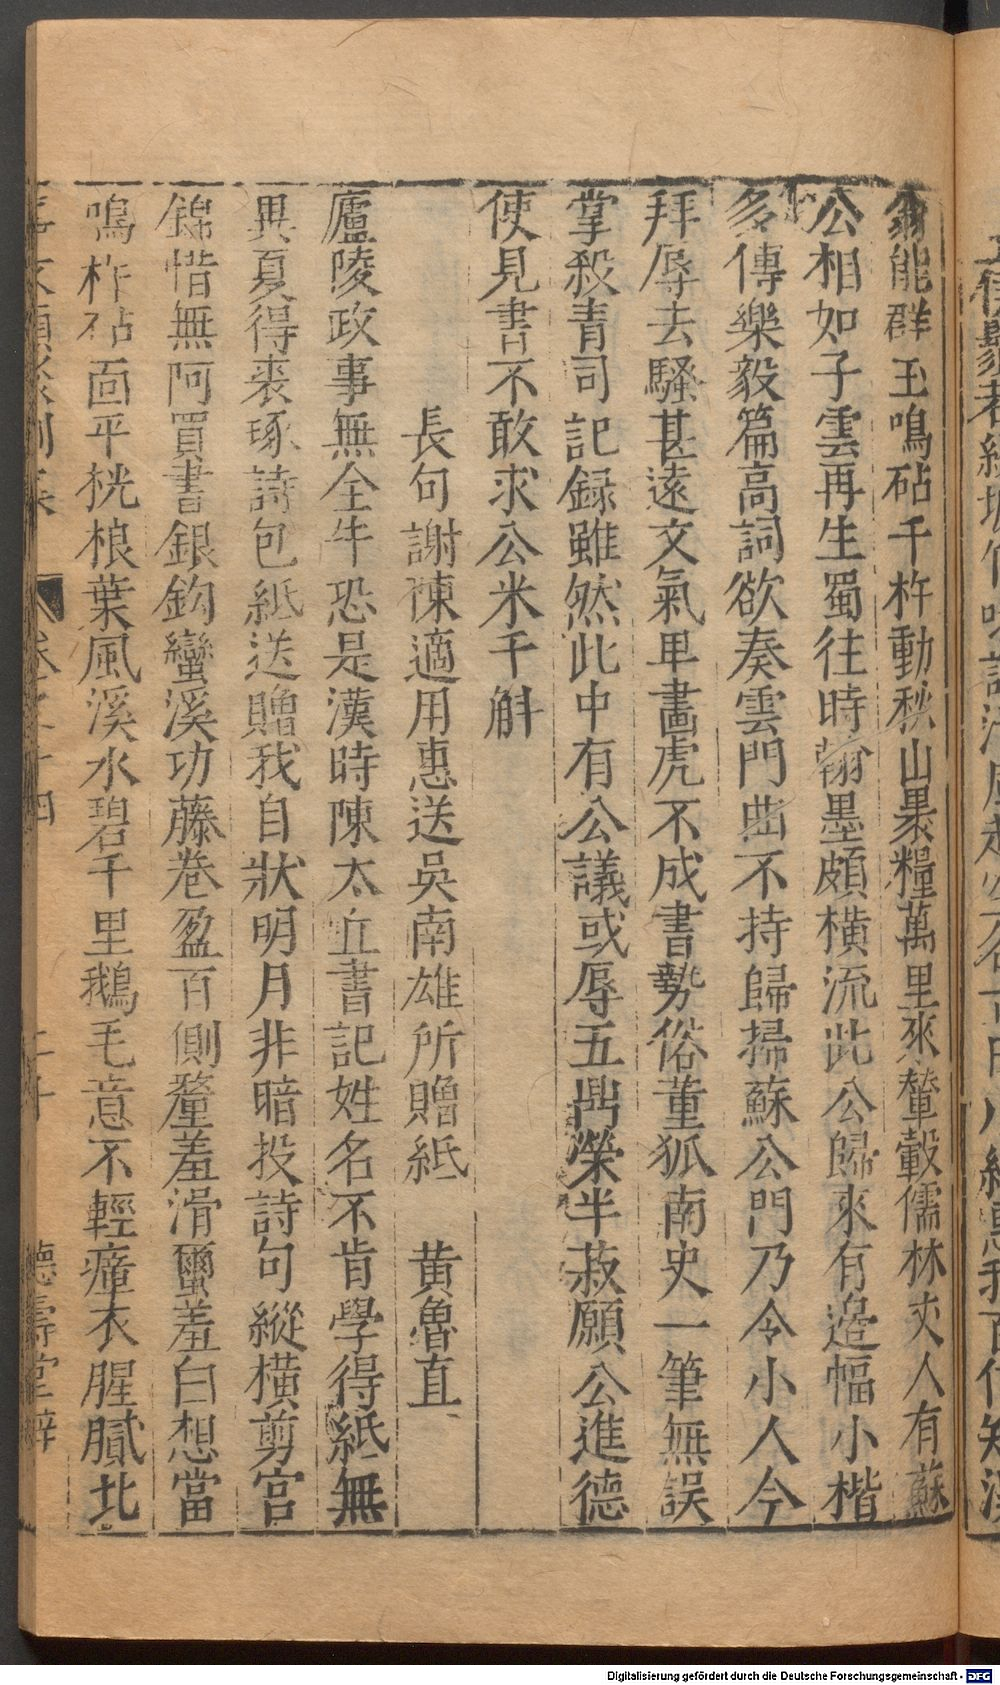 翁能群玉鳴砧千杵動秋山裹糧萬里來輦轂儒林丈人有蘇
公相如子雲再生蜀往時翰墨頗横流此公歸來有邉幅小楷
多傳樂毅篇高詞欲奏雲門曲不持歸掃蘇公門乃令小人今
拜辱去騷甚遠文氣卑畫虎不成書勢俗董狐南史一筆無誤
掌殺青司記録雖然此中有公議或辱五鼎榮半菽願公進德
使見書不敢求公米千斛
長句謝陳適用惠送吳南雄所贈紙 黄魯直
廬陵政事無全牛恐是漢時陳太丘書記姓名不肯學得紙無
異夏得裘琢詩包紙送贈我自狀明月非暗投詩句縱横剪宫
錦惜無阿買書銀鈎蠻溪功藤卷盈百側釐羞滑璽羞白想當
鳴杵砧面平桄桹葉風溪水碧千里鵝毛意不輕瘴衣腥膩北
卷之十四 德壽堂梓
Digitalisierung gefördert durch die Deutsche Forschungsgemeinschaft - DFG